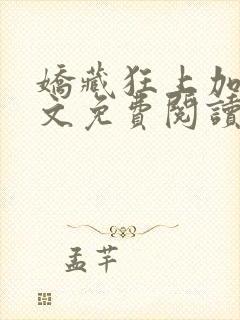 嬌藏狂上加
文免費閱讀
孟芊